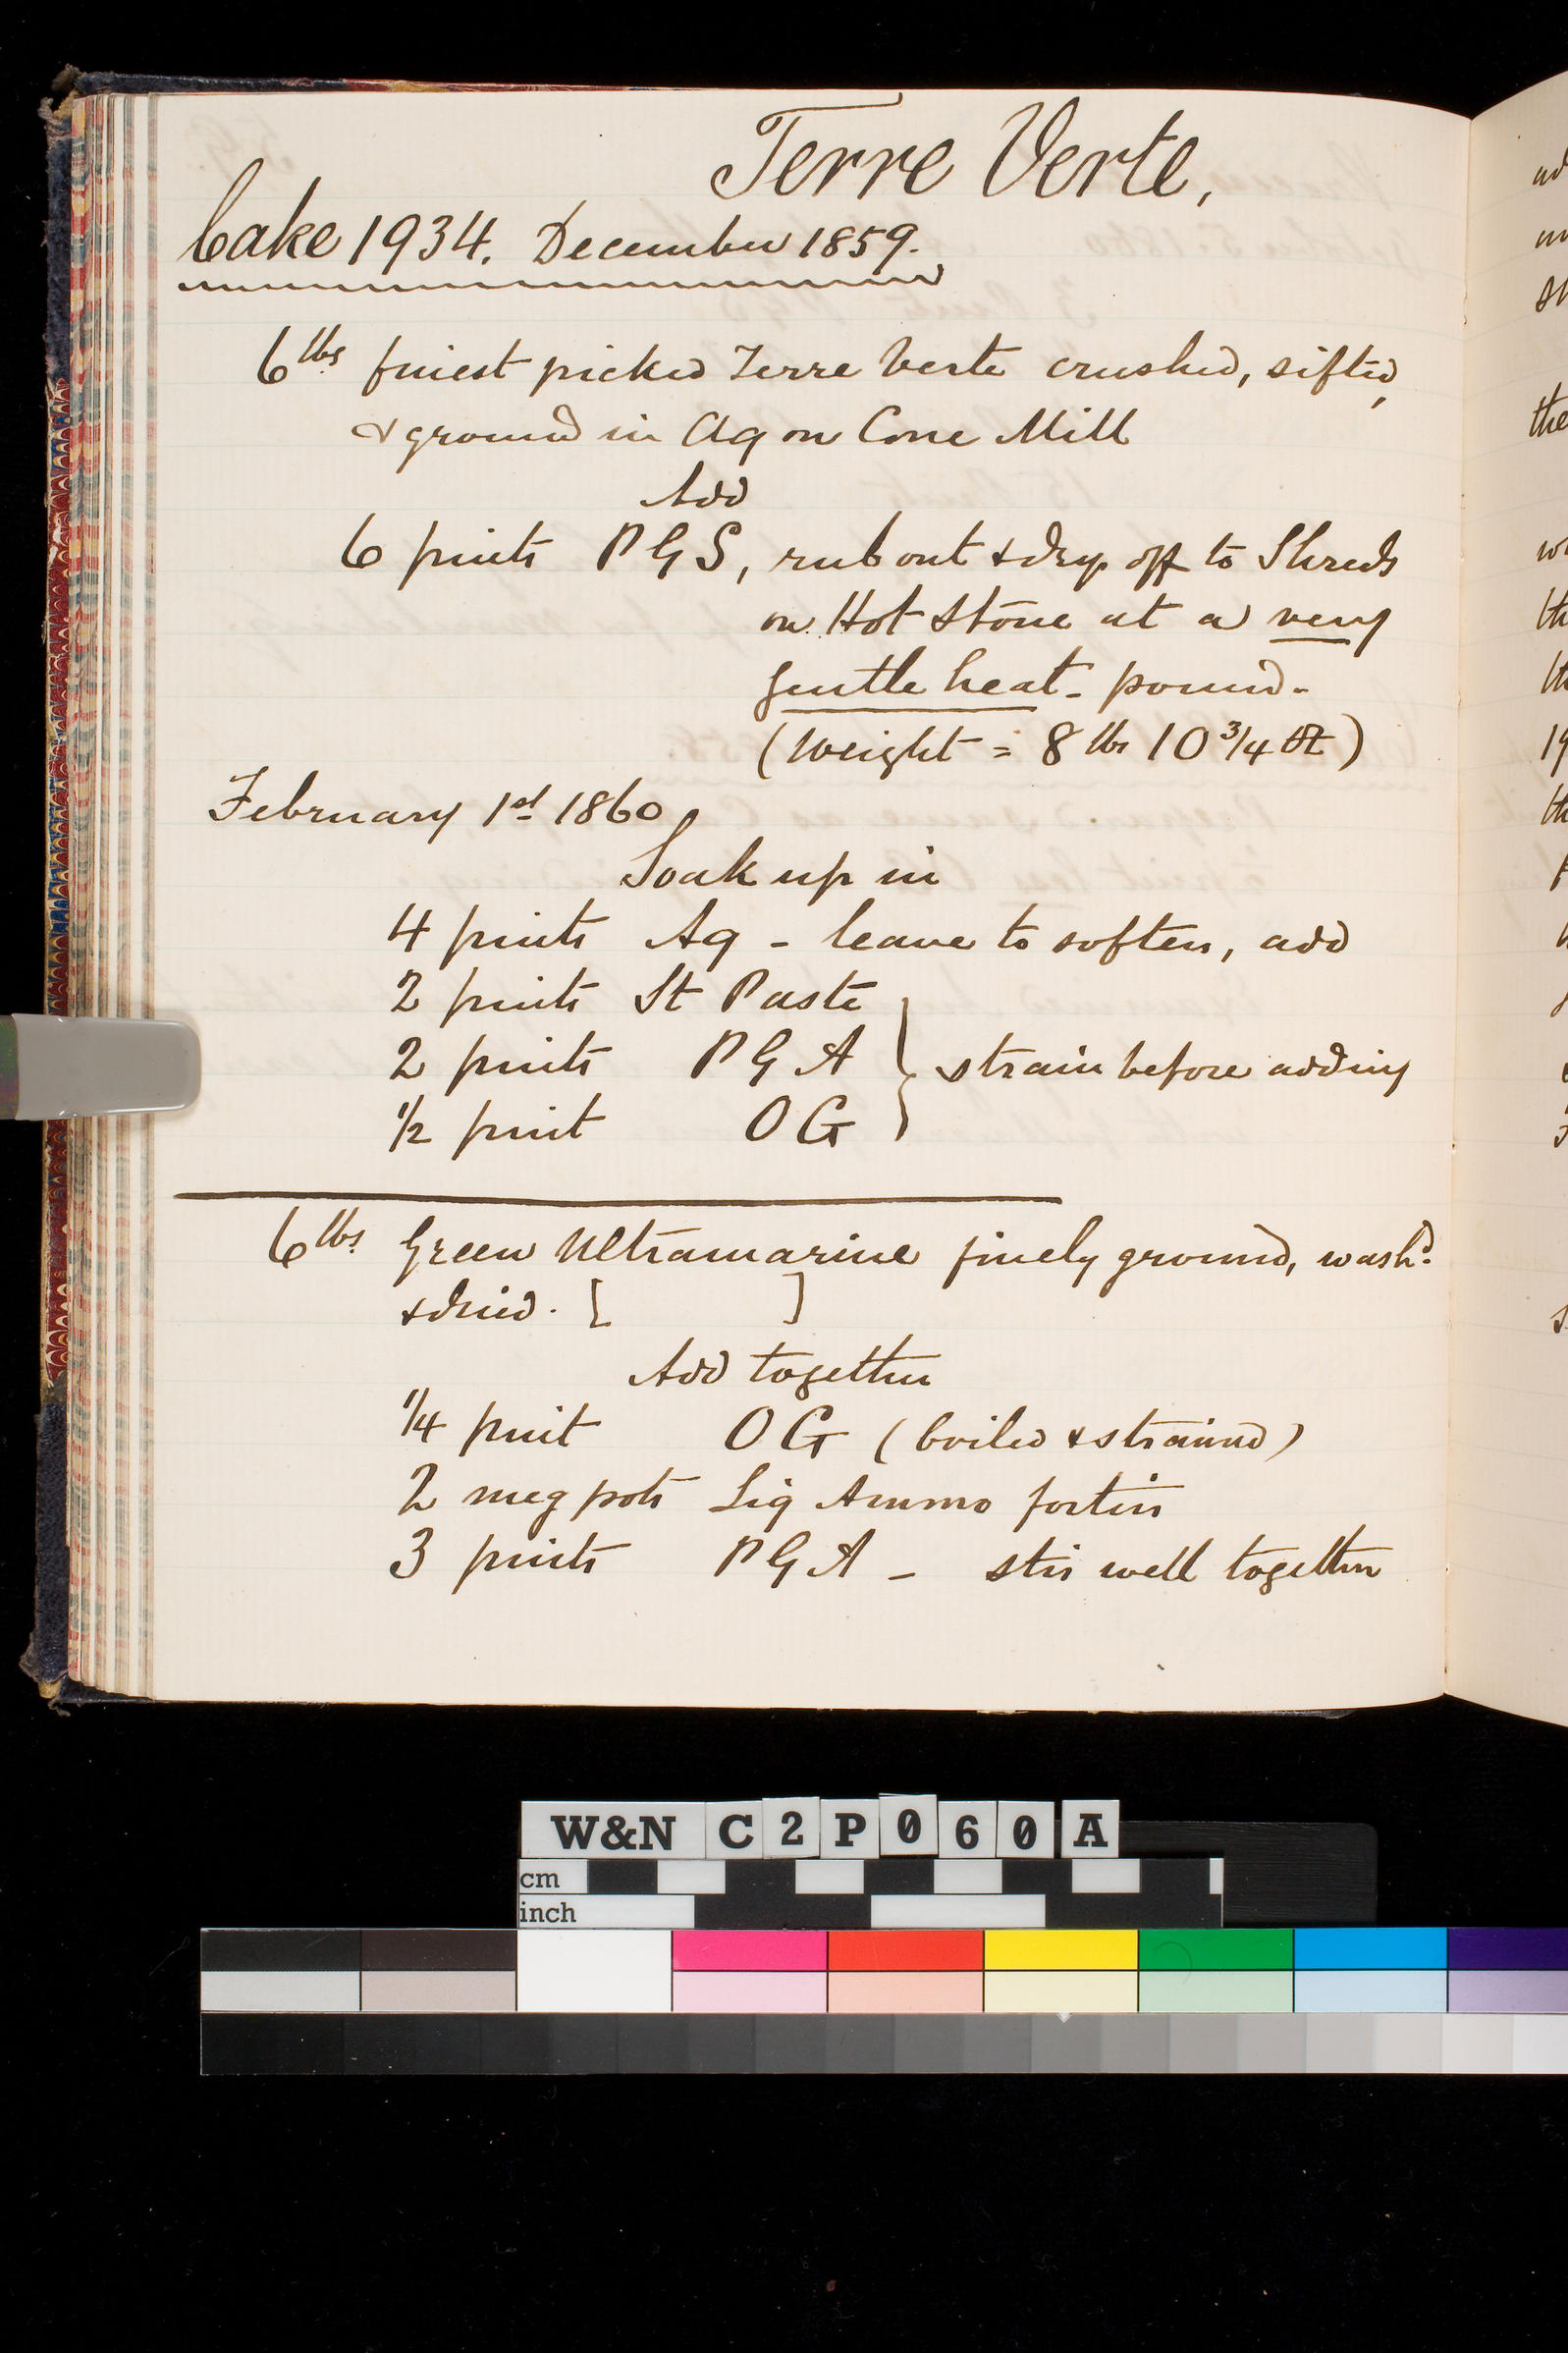 Terre Verte,
Cake 1934. December 1859.
6 lbs finest picked Terre Verte crushed, sifted,
& ground in Aq on Cone Mill
Add
6 pints P G S, rub out & dry off to Shreds
on Hot Stone at a very
gentle heat - pound -
(Weight = 8 lbs 10 3/4
February 1st 1860
Soak up in
4 pints Aq - leave to soften, add
2 pints St Paste
2 pints P G A } strain before adding
1/2 pint O G
6 lbs. Green Ultramarine finely ground, washd.
& dried. [ ]
Add together
1/4 pint O G (boiled & strained)
2 meg pots Liq Ammo fortis
3 pints P G A - stir well together
ad
the
th
th
19
th
W&N C2P060A
cm
inch